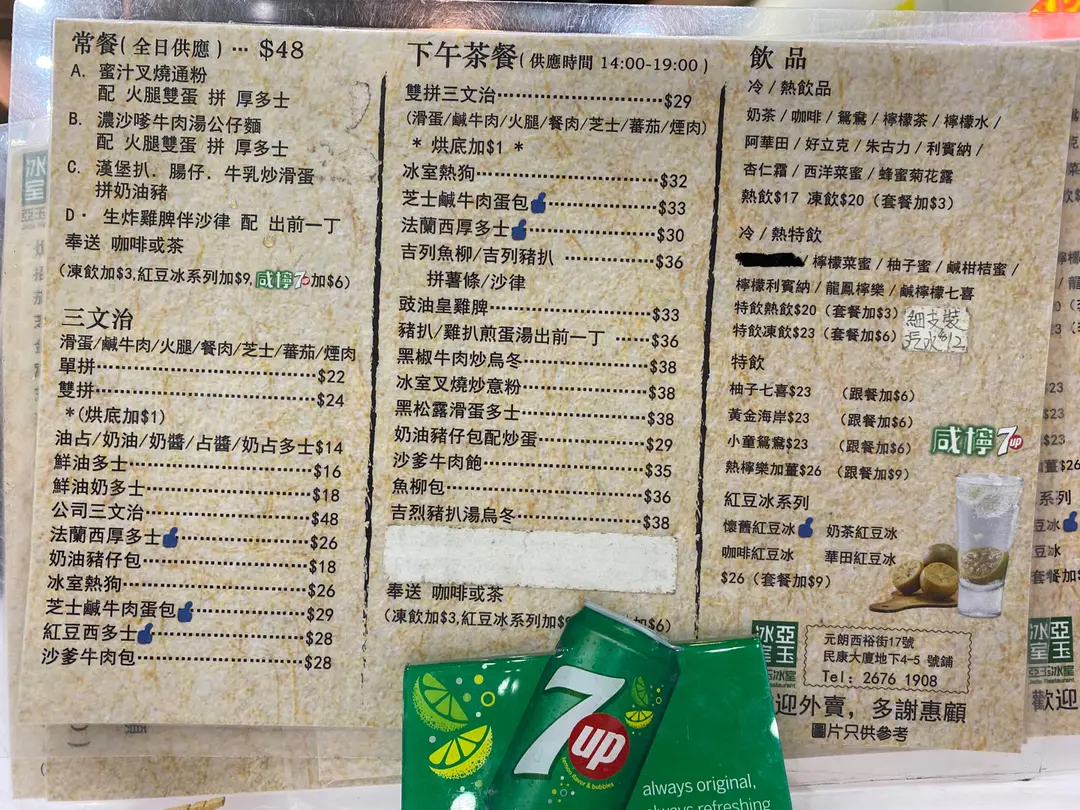 常餐(全日供應) … $48
A. 蜜汁叉燒通粉
配 火腿雙蛋 拼 厚多士
B. 濃沙嗲牛肉湯公仔麵
配 火腿雙蛋 拼 厚多士
C. 漢堡扒．腸仔．牛乳炒滑蛋
拼奶油豬
D· 生炸雞脾伴沙律 配 出前一丁
奉送 咖啡或茶
(凍飲加$3,紅豆冰系列加$9,咸檸7up加$6)
三文治
滑蛋/鹹牛肉/火腿/餐肉/芝士/蕃茄/煙肉
單拼……$22
雙拼……$24
*(烘底加$1)
油占/奶油/奶醬/占醬/奶占多士$14
鮮油多士……$16
鮮油奶多士……$18
公司三文治……$48
法蘭西厚多士……$26
奶油豬仔包……$18
冰室熱狗……$26
芝士鹹牛肉蛋包……$29
紅豆西多士……$28
沙爹牛肉包……$28
下午茶餐(供應時間 14:00-19:00)
雙拼三文治……$29
(滑蛋/鹹牛肉/火腿/餐肉/芝士/蕃茄/煙肉)
* 烘底加$1 *
冰室熱狗……$32
芝士鹹牛肉蛋包……$33
法蘭西厚多士……$30
吉列魚柳/吉列豬扒……$36
拼薯條/沙律
豉油皇雞脾……$33
豬扒/雞扒煎蛋湯出前一丁……$36
黑椒牛肉炒烏冬……$38
冰室叉燒炒意粉……$38
黑松露滑蛋多士……$38
奶油豬仔包配炒蛋……$29
沙爹牛肉飽……$35
魚柳包……$36
吉烈豬扒湯烏冬……$38
奉送 咖啡或茶
(凍飲加$3,紅豆冰系列加$6)
飲品
冷/熱飲品
奶茶/咖啡/鴛鴦/檸檬茶/檸檬水/
阿華田/好立克/朱古力/利賓納/
杏仁霜/西洋菜蜜/蜂蜜菊花露
熱飲$17 凍飲$20（套餐加$3）
冷/熱特飲
/檸檬菜蜜/柚子蜜/鹹柑桔蜜/
檸檬利賓納/龍鳳檸樂/鹹檸檬七喜
特飲熱飲$20（套餐加$3）
特飲凍飲$23（套餐加$6）
細支裝
汽水$12
特飲
柚子七喜$23 （跟餐加$6）
黃金海岸$23 （跟餐加$6）
小童鴛鴦$23 （跟餐加$6）
熱檸樂加薑$26 （跟餐加$9）
咸檸7up
紅豆冰系列
懷舊紅豆冰 奶茶紅豆冰
咖啡紅豆冰 華田紅豆冰
$26（套餐加$9）
亞玉冰室
元朗西裕街17號
民康大廈地下4-5 號鋪
Tel: 2676 1908
迎外賣，多謝惠顧
圖片只供參考
7up
lemon flavor & bubbles
always original,
always refreshing